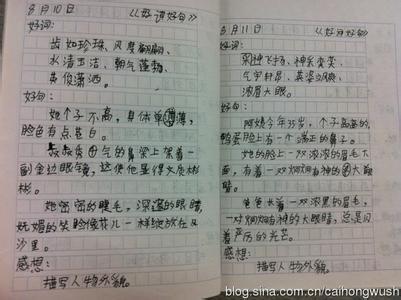 8月10日 《好词好句》
好词:
齿如珍珠、风度翩翩、
冰清玉洁、朝气蓬勃、
英俊潇洒。
好句:
她个子不高,身体单薄,
脸色有点苍白。
叔叔秀气的鼻梁上架着一
副金边眼镜,这使他显得文质彬
彬。
她密密的睫毛,深邃的眼睛,
妩媚的笑脸像花儿一样绽放在
沙里。
感想:
描写人物外貌。
8月11日 《好词好句》
好词:
眉神飞扬、神采奕奕、
气宇轩昂、英姿飒爽、
浓眉大眼。
好句:
阿姨今年35岁,个子高高的,
鸭蛋脸上有一个端正的鼻子。
她的脸上一双浓浓的眉毛下
面,有着一双炯炯有神的大眼
睛。
爸爸长着一双浓黑的眉毛,
一对炯炯有神的大眼睛,总是闪
着严厉的光芒。
感想:
描写人物外貌。
blog.sina.com.cn/caihongwush